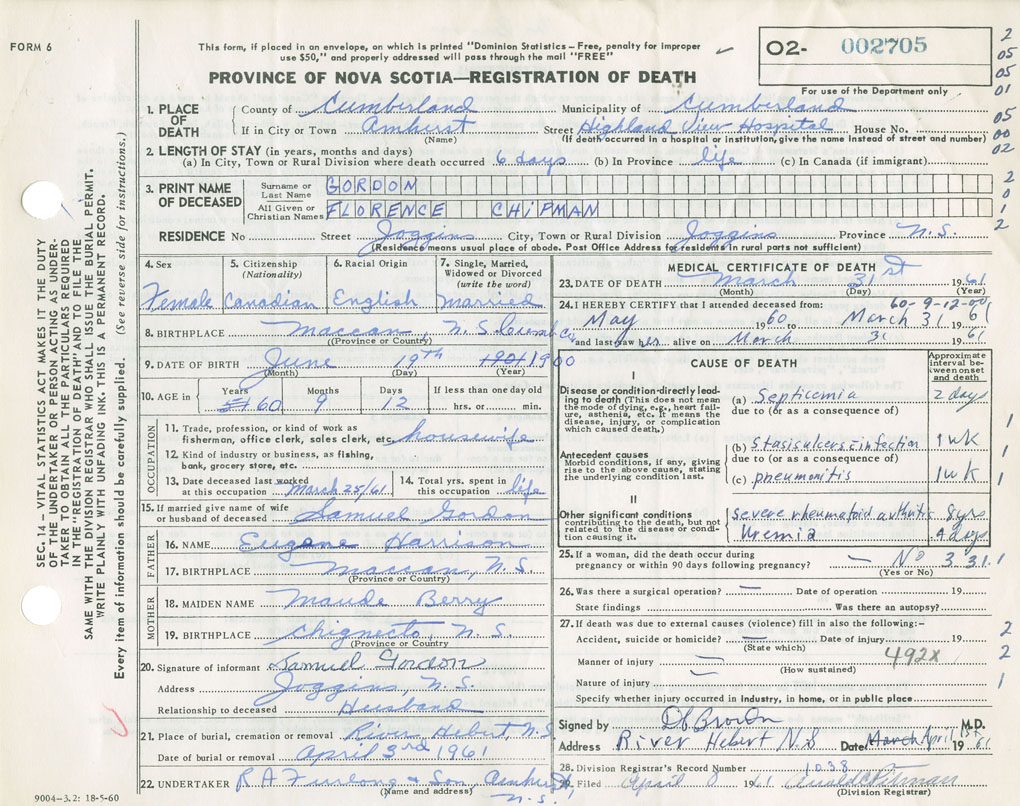 FORM 6
This form, if placed in an envelope, on which is printed "Dominion Statistics – Free, penalty for improper
use $50," and properly addressed will pass through the mail "FREE"
O2- 002705
For use of the Department only
PROVINCE OF NOVA SCOTIA—REGISTRATION OF DEATH
2
05
05
01
05
00
02
2
0
1
2
1. PLACE OF DEATH
County of Cumberland Municipality of Cumberland
If in City or Town Amherst Street Highland View Hospital House No.
(Name) (If death occurred in a hospital or institution, give the name instead of street and number)
2. LENGTH OF STAY (in years, months and days)
(a) In City, Town or Rural Division where death occurred 6 days (b) In Province life (c) In Canada (if immigrant)
3. PRINT NAME OF DECEASED
Surname or Last Name GORDON
All Given or Christian Names FLORENCE CHIPMAN
RESIDENCE No Street Joggins City, Town or Rural Division Joggins Province N.S.
(Residence means usual place of abode. Post Office Address for residents in rural parts not sufficient)
4. Sex Female
5. Citizenship (Nationality) Canadian
6. Racial Origin English
7. Single, Married, Widowed or Divorced (write the word) Married
8. BIRTHPLACE Maccan, N.S. Cumb Co
(Province or Country)
9. DATE OF BIRTH June 19th 1901 1900
(Month) (Day) (Year)
10. AGE in Years 60 Months 9 Days 12 If less than one day old hrs. or min.
OCCUPATION
11. Trade, profession, or kind of work as
fisherman, office clerk, sales clerk, etc. housewife
12. Kind of industry or business, as fishing,
bank, grocery store, etc.
13. Date deceased last worked
at this occupation March 25/61
14. Total yrs. spent
in this occupation life
15. If married give name of wife
or husband of deceased Samuel Gordon
FATHER
16. NAME Eugene Harrison
17. BIRTHPLACE Maccan, N.S.
(Province or Country)
MOTHER
18. MAIDEN NAME Maude Berry
19. BIRTHPLACE Chignecto, N.S.
(Province or Country)
20. Signature of informant Samuel Gordon
Address Joggins, N.S.
Relationship to deceased Husband
21. Place of burial, cremation or removal River Hebert N.S
Date of burial or removal April 3rd 1961
22. UNDERTAKER R A Furlong & Son, Amherst,
(Name and address) N.S.
9004–3.2: 18-5-60
MEDICAL CERTIFICATE OF DEATH
23. DATE OF DEATH March 31st 1961
(Month) (Day) (Year)
24. I HEREBY CERTIFY that I attended deceased from: 60-9-12-00
May 1960 to March 31 1961
and last saw her alive on March 31 1961
CAUSE OF DEATH
Approximate interval between onset and death
I
Disease or condition directly leading to death (This does not mean the mode of dying, e.g., heart failure, asthenia, etc. It means the disease, injury, or complication which caused death.)
(a) Septicemia 2 days
due to (or as a consequence of)
Antecedent causes
Morbid conditions, if any, giving rise to the above cause, stating the underlying condition last.
(b) Stasis ulcers infection 1 wk
due to (or as a consequence of)
(c) pneumonitis 1 wk
II
Other significant conditions
contributing to the death, but not related to the disease or condition causing it.
severe rheumatoid arthritis 8 yrs
Uremia days
25. If a woman, did the death occur during
pregnancy or within 90 days following pregnancy? — No 3 31.1
(Yes or No)
26. Was there a surgical operation? — Date of operation 19
State findings Was there an autopsy?
27. If death was due to external causes (violence) fill in also the following:–
Accident, suicide or homicide? — Date of injury 19
(State which)
Manner of injury — 492X
(How sustained)
Nature of injury —
Specify whether injury occurred in industry, in home, or in public place
1
1
1
1
2
2
1
Signed by Brown M.D.
Address River Hebert N.S Date March April 1st 1961
28. Division Registrar's Record Number 1038
29. Filed April 8 1961 Pitman
(Division Registrar)
SEC. 14 – VITAL STATISTICS ACT MAKES IT THE DUTY
OF THE UNDERTAKER OR PERSON ACTING AS UNDER-
TAKER TO OBTAIN ALL THE PARTICULARS REQUIRED
IN THE "REGISTRATION OF DEATH" AND TO FILE THE
SAME WITH THE DIVISION REGISTRAR WHO SHALL ISSUE THE BURIAL PERMIT.
WRITE PLAINLY WITH UNFADING INK. THIS IS A PERMANENT RECORD.
Every item of information should be carefully supplied. (See reverse side for instructions.)